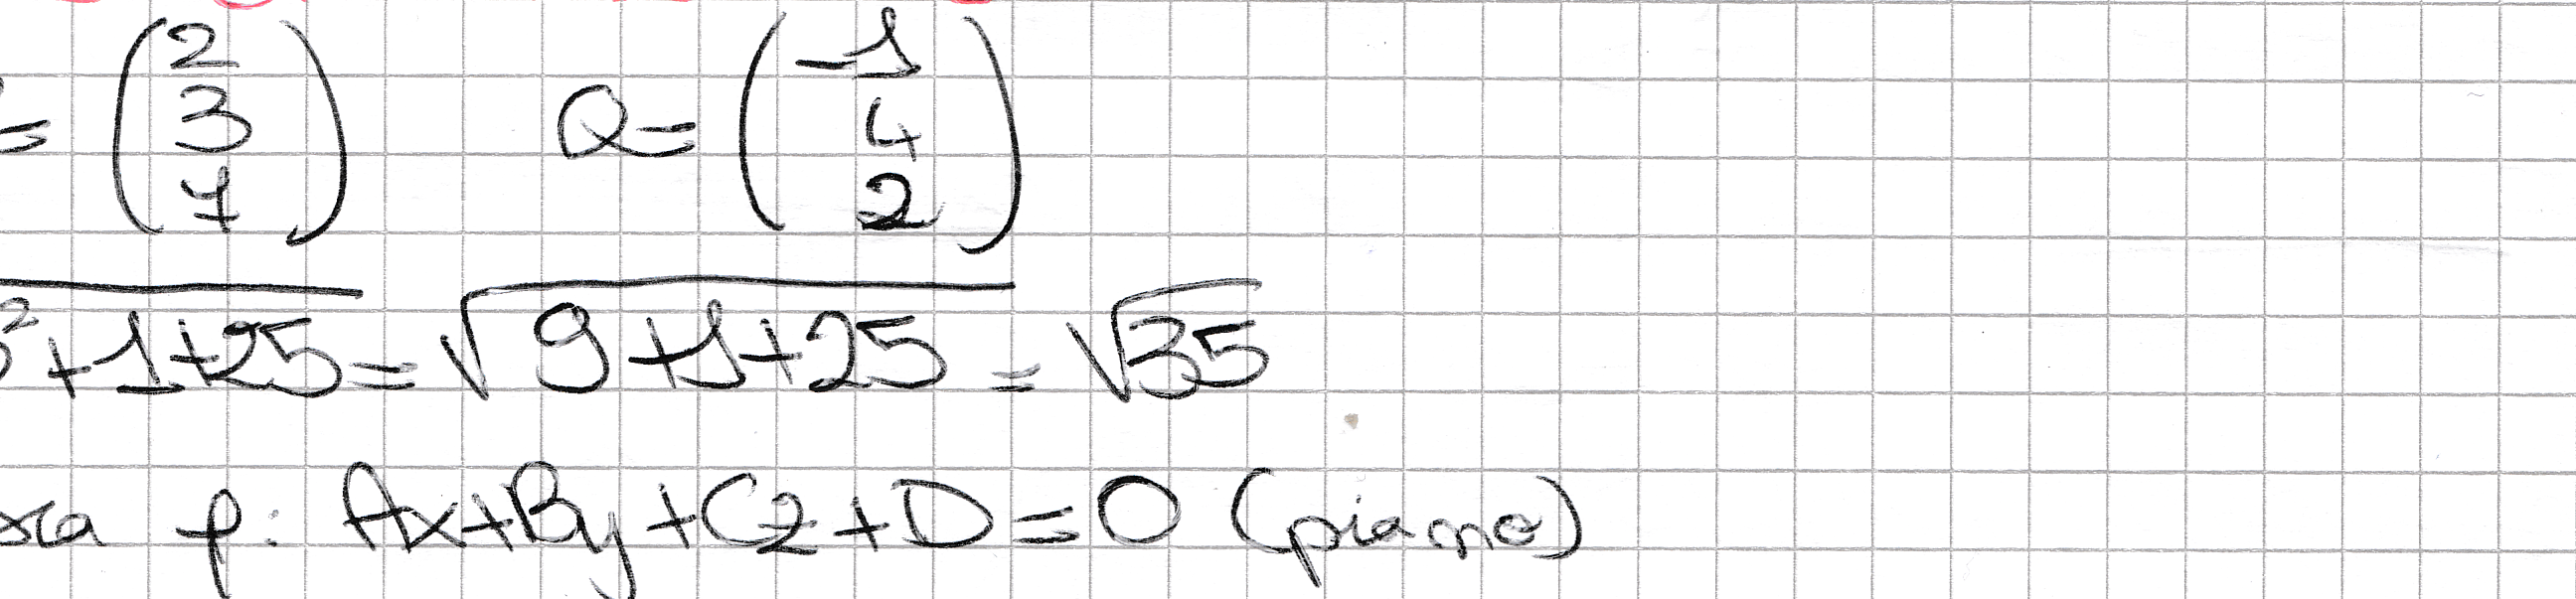 = (2 3 7) Q = (-1 4 2)
²+1+25 = √9+1+25 = √35
p: Ax+By+Cz+D=0 (piano)